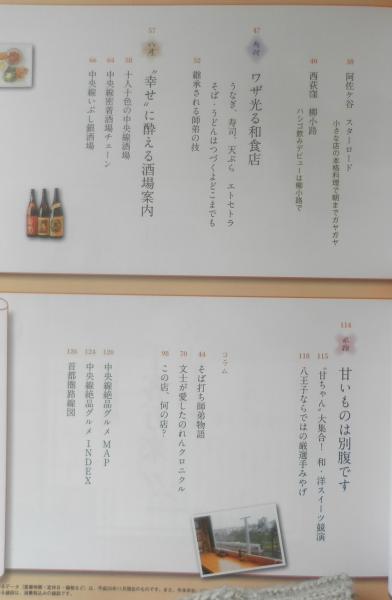 38
阿佐ヶ谷 スターロード
小さな店の本格料理で朝までガヤガヤ
40
西荻窪 柳小路
ハシゴ飲みデビューは柳小路で
47
ワザ光る和食店
うなぎ、寿司、天ぷら エトセトラ
そば・うどんはつづくよどこまでも
52
継承される師弟の技
57
“幸せ”に酔える酒場案内
58
十人十色の中央線酒場
64
中央線密着酒場チェーン
66
中央線いぶし銀酒場
114
甘いものは別腹です
115
“甘ちゃん”大集合！ 和・洋スイーツ競演
118
八王子ならではの厳選手みやげ
コラム
44
そば打ち師弟物語
70
文士が愛したのれんクロニクル
98
この店、何の店？
120
中央線絶品グルメ MAP
124
中央線絶品グルメ INDEX
126
首都圏路線図